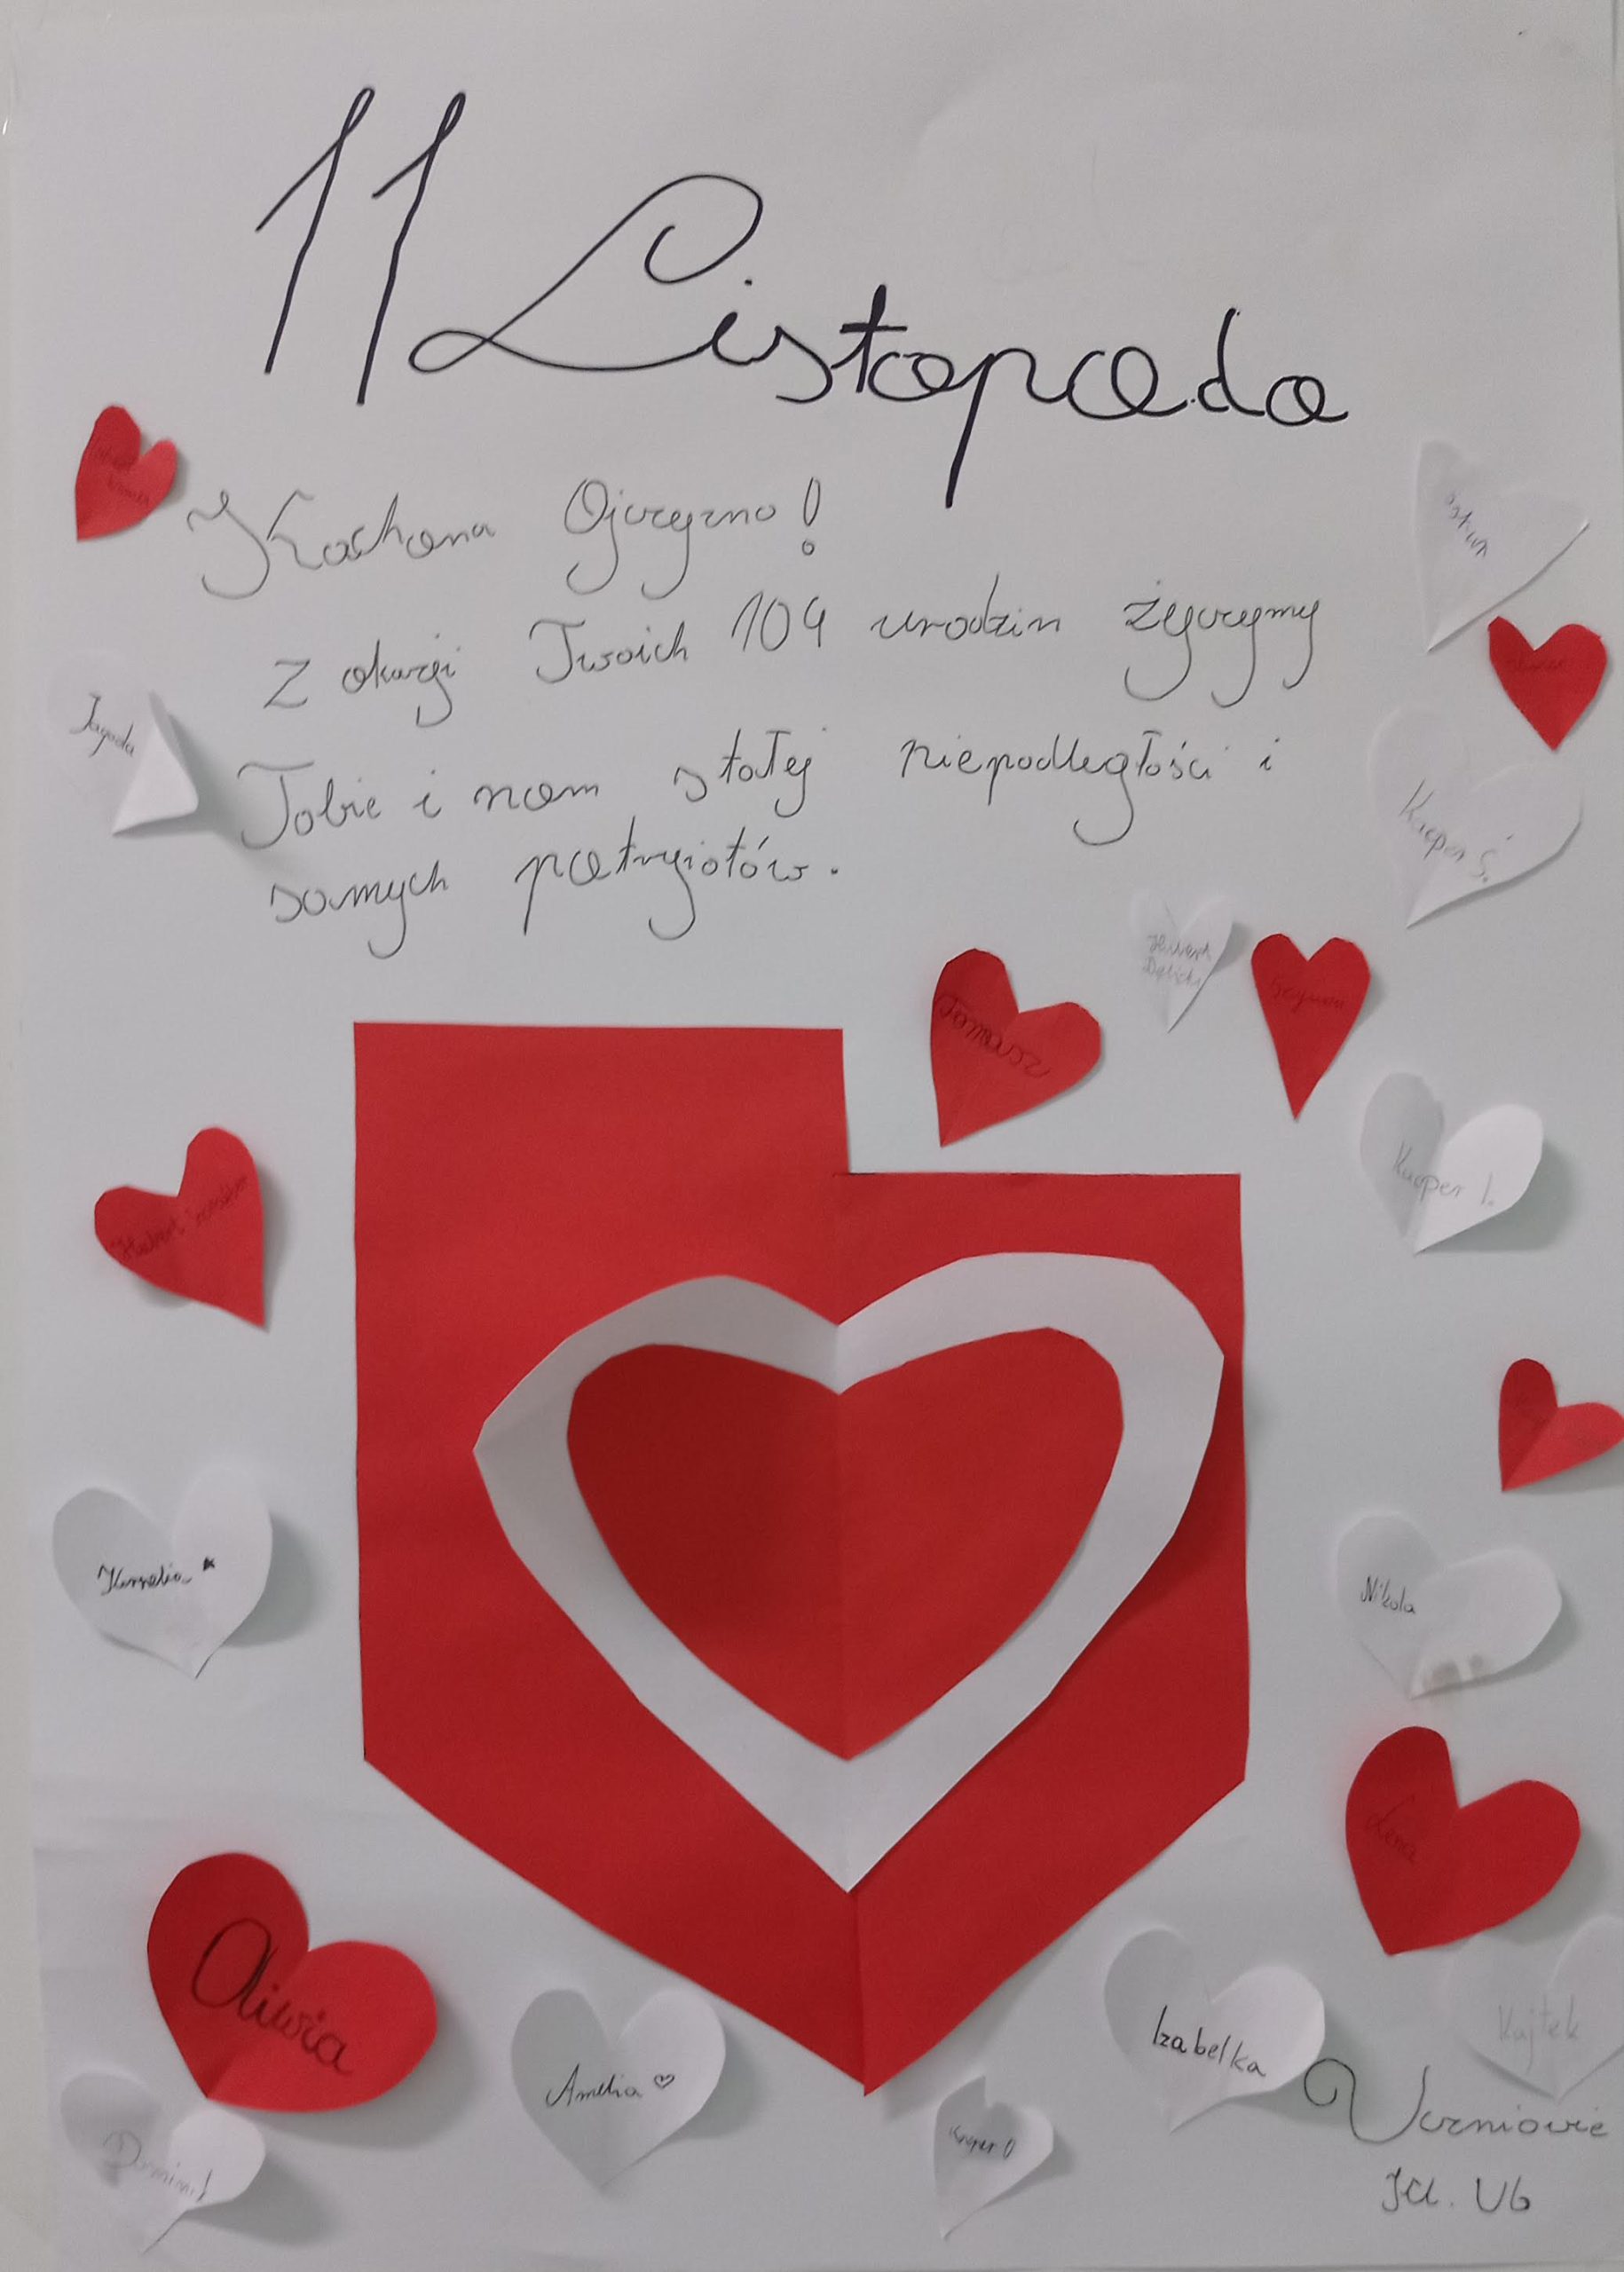 11 Listopada
Kochana Ojczyzno!
Z okazji Twoich 104 urodzin życzymy
Tobie i nam stałej niepodległości i
samych patryiotów.
Jagoda
Kacper Ś.
Hubert
Tomasz
Szymon
Kacper I.
Hubert
Kornelia
Nikola
Lena
Oliwia
Izabelka
Kajtek
Amelia ♡
Kacper O
Uczniowie
Dominik
Kl. Vb